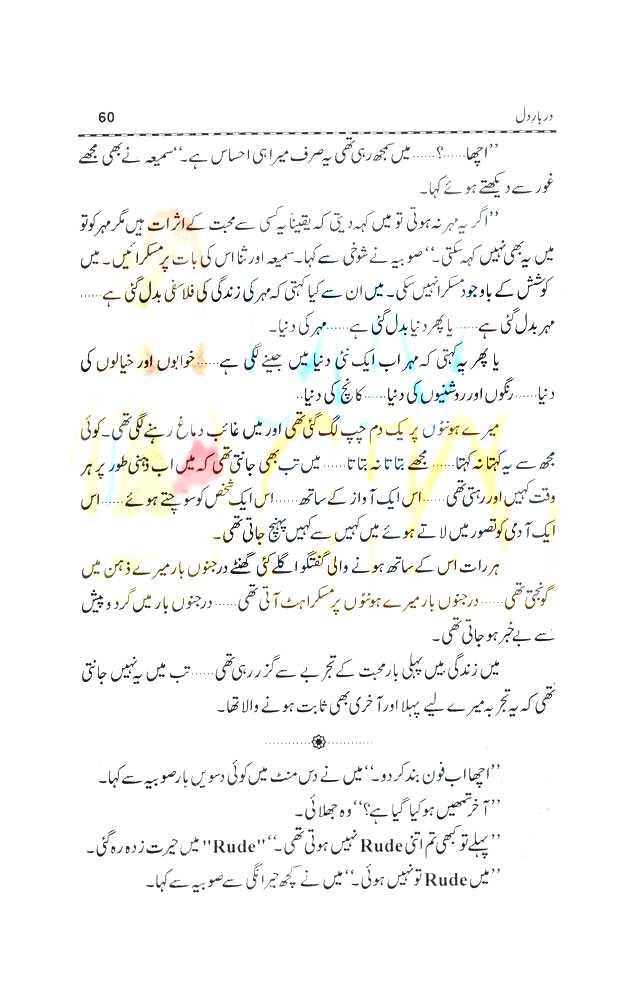 دربارِ دل 60
’’اچھا......؟...... میں سمجھ رہی تھی یہ صرف میرا ہی احساس ہے۔‘‘ سمیعہ نے بھی مجھے
غور سے دیکھتے ہوئے کہا۔
’’اگر یہ مہر نہ ہوتی تو میں کہہ دیتی کہ یقیناً یہ کسی سے محبت کے اثرات ہیں مگر مہر کو تو
میں یہ بھی نہیں کہہ سکتی۔‘‘ صوبیہ نے شوخی سے کہا۔ سمیعہ اور ثنا اس کی بات پر مسکرائیں۔ میں
کوشش کے باوجود مسکرا نہیں سکی۔ میں ان سے کیا کہتی کہ مہر کی زندگی کی فلاسفی بدل گئی ہے......
مہر بدل گئی ہے...... یا پھر دنیا بدل گئی ہے...... مہر کی دنیا۔
یا پھر یہ کہتی کہ مہر اب ایک نئی دنیا میں جینے لگی ہے...... خوابوں اور خیالوں کی
دنیا...... رنگوں اور روشنیوں کی دنیا...... کانچ کی دنیا..
میرے ہونٹوں پر یک دم چپ لگ گئی تھی اور میں غائب دماغ رہنے لگی تھی۔ کوئی
مجھ سے یہ کہتا نہ کہتا...... مجھے بتاتا نہ بتاتا...... میں تب بھی جانتی تھی کہ میں اب ذہنی طور پر ہر
وقت کہیں اور رہتی تھی...... اس ایک آواز کے ساتھ...... اس ایک شخص کو سوچتے ہوئے...... اس
ایک آدمی کو تصور میں لاتے ہوئے میں کہیں سے کہیں پہنچ جاتی تھی۔
ہر رات اس کے ساتھ ہونے والی گفتگو اگلے کئی گھنٹے درجنوں بار میرے ذہن میں
گونجتی تھی...... درجنوں بار میرے ہونٹوں پر مسکراہٹ آتی تھی...... درجنوں بار میں گرد و پیش
سے بے خبر ہو جاتی تھی۔
میں زندگی میں پہلی بار محبت کے تجربے سے گزر رہی تھی...... تب میں یہ نہیں جانتی
تھی کہ یہ تجربہ میرے لیے پہلا اور آخری بھی ثابت ہونے والا تھا۔
’’اچھا اب فون بند کر دو۔‘‘ میں نے دس منٹ میں کوئی دسویں بار صوبیہ سے کہا۔
’’آخر تمھیں ہو کیا گیا ہے؟‘‘ وہ جھلائی۔
’’پہلے تو کبھی تم اتنی Rude نہیں ہوتی تھی۔‘‘ "Rude" میں حیرت زدہ رہ گئی۔
’’میں Rude تو نہیں ہوئی۔‘‘ میں نے کچھ حیرانگی سے صوبیہ سے کہا۔